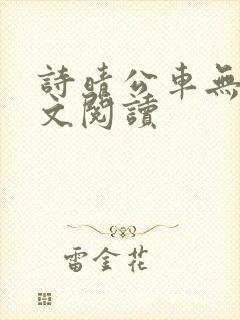 詩晴公車無
文閱讀
雷金花